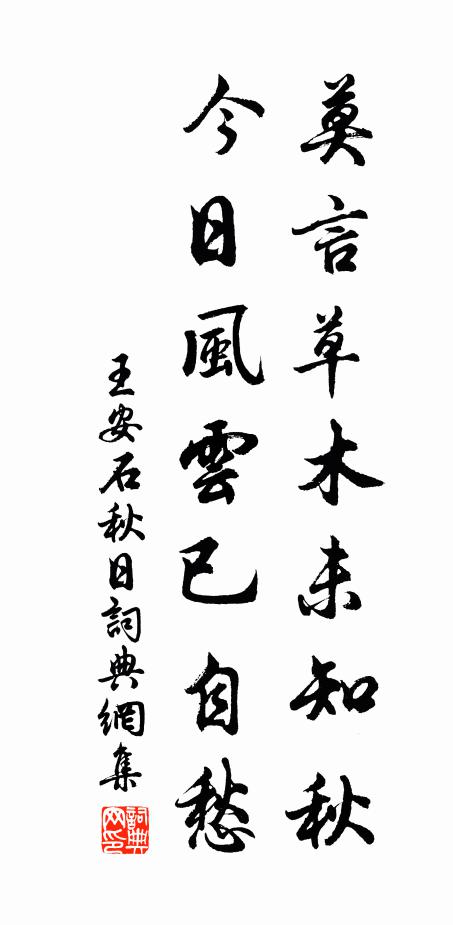 莫言草木未知秋
今日風雲已自愁
王安石秋日詞典網集
詞典
网印